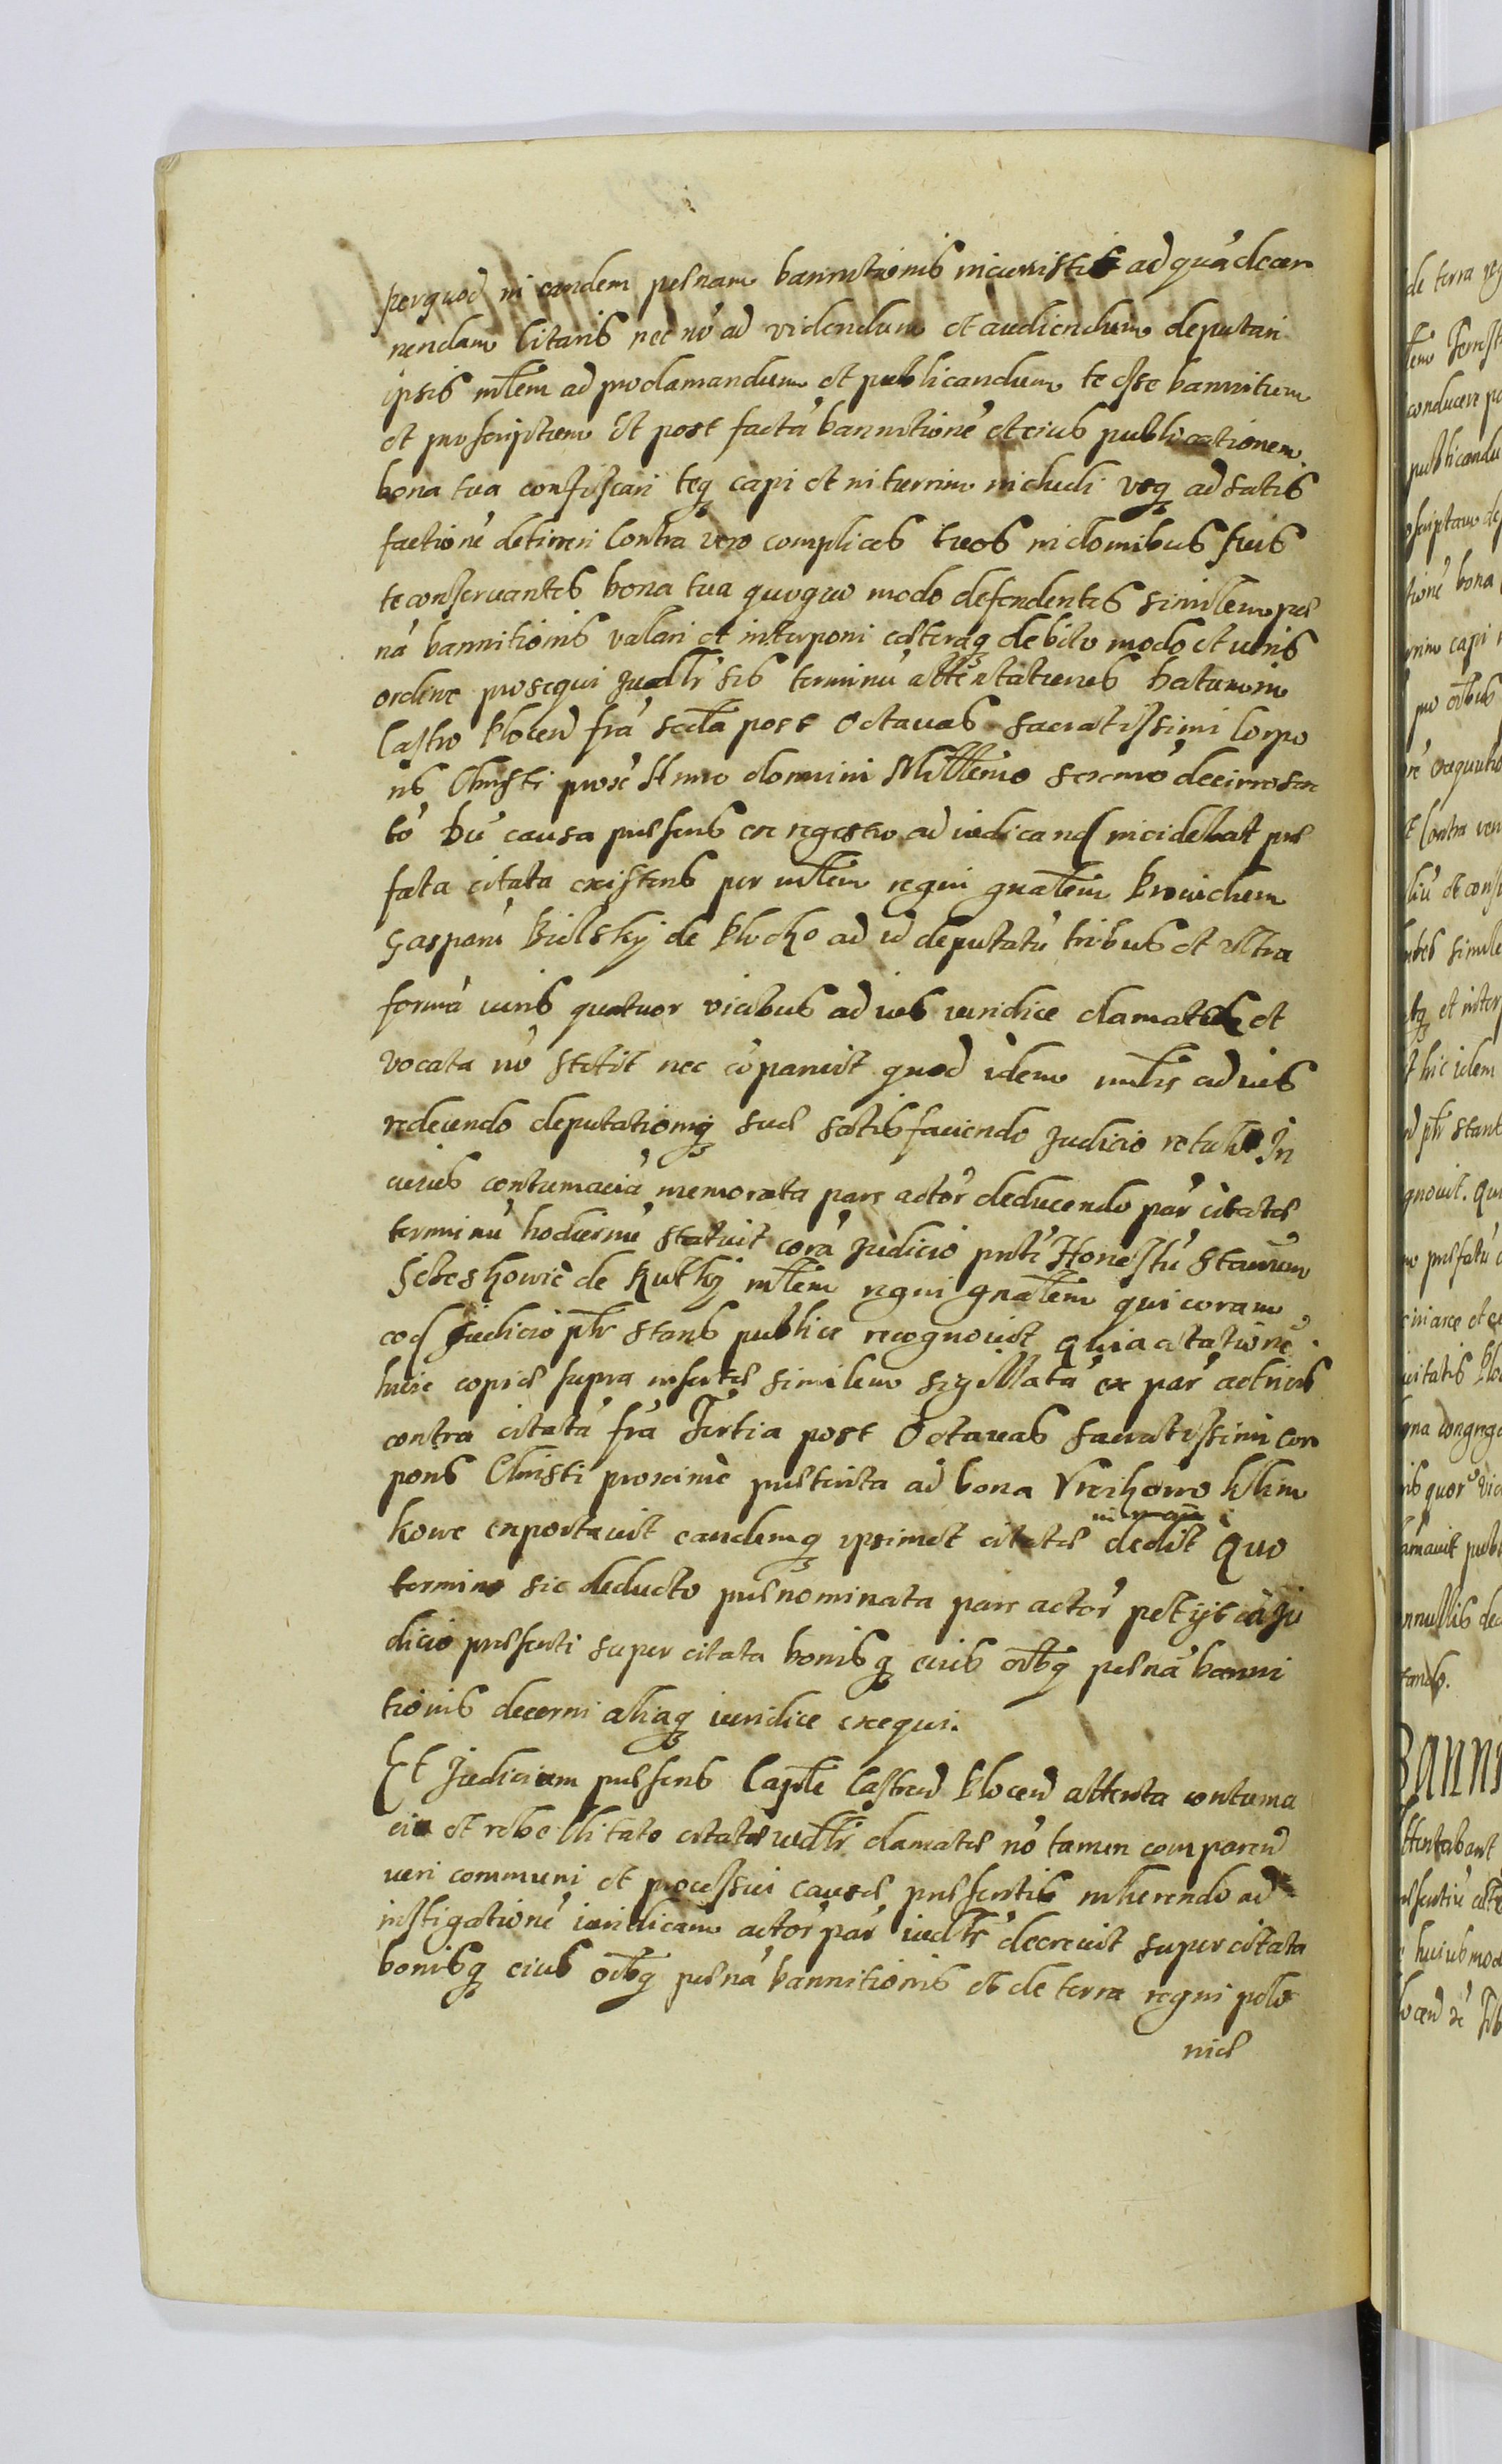 perquod in eandem poenam bannitionis incurristi ad quā decer
nendam citaris nec nō ad videndum et audiendum deputari
ipsis mlem ad proclamandum et publicandum te esse bannitum
et proscriptum Et post factā bannitionē et eius publicationem
bona tua confiscari teq capi et in turrim includi usq ad satis
factionē detineri Contra vero complices tuos in domibus suis
te conservantes bona tua quoquo modo defendentes similem poe
nā bannitionis valari et interponi caeteraq debito modo et iuris
ordine prosequi Judlr sis terminū attentaturus Datum in
Castro Plocen frā scda post Octavas sacratissimi Corpo
ris Christi prox Anno domini Millemo sexmo decimo sex
to Dū causa praesens ex regestro ad iudicand incidebat prae
fata citata existens per mlem regni gnalem Providum
Gasparū Bielsky de Plocko ad id deputatū tribus et ultra
formā iuris quatuor vicibus ad ius iuridice clamata et
vocata nō stetit nec cōparuit quod idem mlis ad ius
redeundo deputationiq suae satisfaciendo Judicio retulit In
cuius contumaciā memorata pars actor deducendo par citatae
terminū hodiernū statuit corā Judicio pnti Honestū Stanum
Sebeskowic de Rutky mlem regni gnalem qui coram
eod Judicio plr stans publice recognovit quia citationē
huic copiae supra insertae similem sigillatā ex par actricis
contra citatā frā Tertia post Octavas sacratissimi Cor
poris Christi proxime praeterita ad bona Klim
kowe exportavit eandemq ipsimet citatae in man dedit Quo
termino sic deducto praenominata pars actor petijt a Ju
dicio praesenti super citata bonisq eius oibq poenā banni
tionis decerni aliaq iuridice exequi.
Et Judicium praesens Caple Castren Plocen attenta contuma
cia et rebellitate citatae iudlr clamatae nō tamen comparen
iuri communi et processui causae praesentis inherendo ad
instigationē iuridicam actor par iudlr decrevit super citata
bonisq eius oibq poenā bannitionis et de terra regni polo
niae